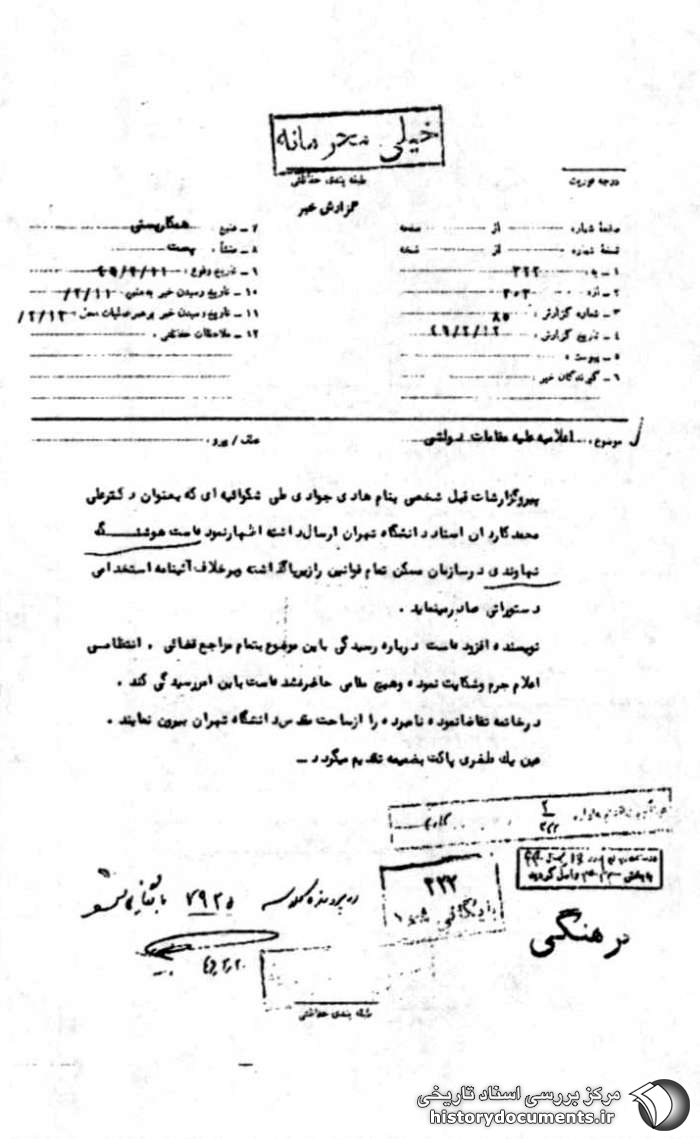 خیلی محرمانه
طبقه بندی حفاظتی
درجه فوریت
گزارش خبر
صفحه شماره از صفحه
نسخه شماره از نسخه
۱ - به : ۳۲۲
۲ - از : ۳۰۳
۳ - شماره گزارش : ۸۵
۴ - تاریخ گزارش : ۴۹/۲/۱۲
۵ - پیوست :
۶ - گیرندگان خبر :
۷ - منبع : همکاریستی
۸ - منشأ : پست
۹ - تاریخ وقوع : ۴۹/۲/۱۱
۱۰ - تاریخ رسیدن خبر به منبع : /۲/۱۱
۱۱ - تاریخ رسیدن خبر برهبر عملیات محل : /۲/۱۲
۱۲ - ملاحظات حفاظتی :
موضوع : اعلامیه علیه مقامات دولتی
عطف / پیرو :
پیروگزارشات قبل شخصی بنام هادی جوادی طی شکوائیه ای که بعنوان دکترعلی
محمد کاردان استاد دانشگاه تهران ارسال داشته اظهارنموده است هوشنگ
نهاوندی درسازمان مسکن تمام قوانین رازیرپاگذاشته وبرخلاف آئینامه استخدامی
دستوراتی صادرمینماید .
نویسنده افزوده است درباره رسیدگی باین موضوع بتمام مراجع قضائی . انتظامی
اعلام جرم وشکایت نموده وهیچ مقامی حاضرنشده است باین امررسیدگی کند .
درخاتمه تقاضانموده نامبرده را ازساحت مقدس دانشگاه تهران بیرون نمایند .
عین یک طغری پاکت بضمیمه تقدیم میگردد ــ
۳۲۲
بایگانی شد
در پرونده کلاسه ۷۹۲۵ بایگانی شود
فرهنگی
طبقه بندی حفاظتی
مرکز بررسی اسناد تاریخی
historydocuments.ir